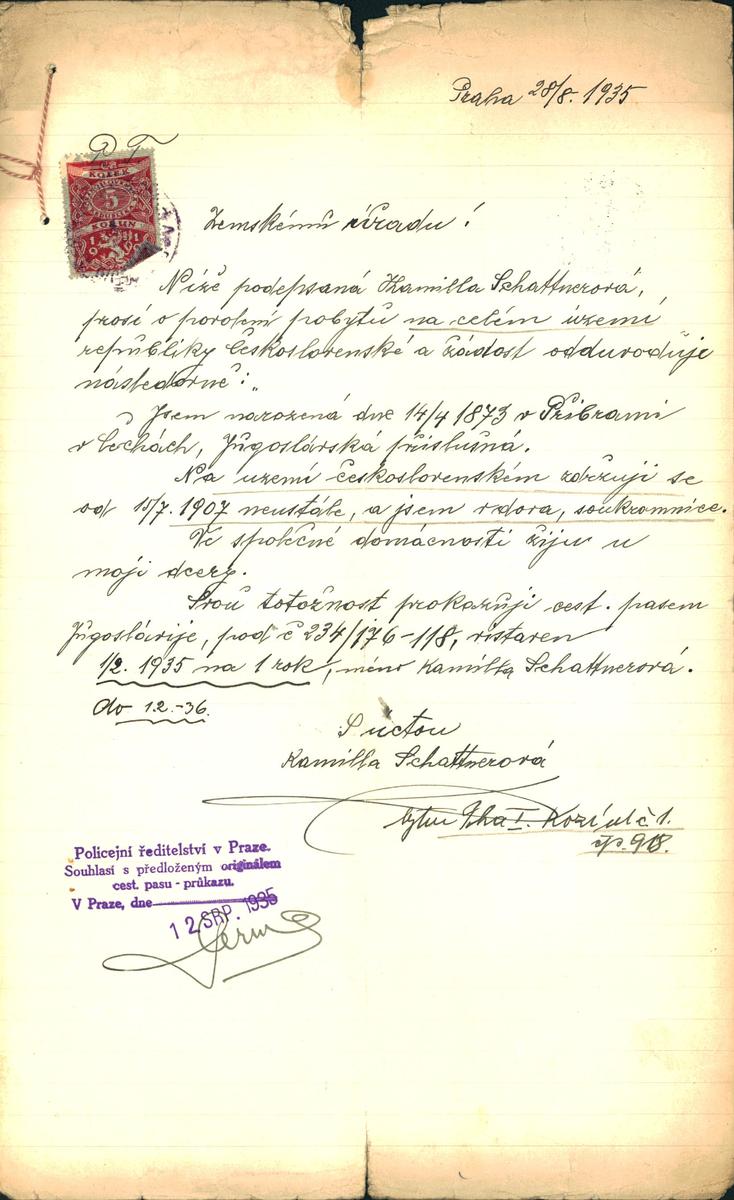 Praha 28/8. 1935
P. T.
KOLEK
5
KORUN
1919
Zemskému úřadu!
Níže podepsaná Kamilla Schattnerová,
prosí o povolení pobytu na celém území
republiky Československé a žádost odduvoduje
následovně:„
Jsem narozená dne 14/4 1873 v Přibrami
v Čechách, Jugoslávská příslušná.
Na uzemí československém zdržuji se
od 15/7. 1907 neustále, a jsem vdova, soukromnice.
Ve společné domácnosti žiju u
moji dcery.
Svou totožnost prokazuji cest. pasem
Jugoslávije, pod č 234/176-118, vistaven
1/2. 1935 na 1 rok, méno Kamilla Schattnerová.
do 1.2.-36.
S úctou
Kamilla Schattnerová
bytem Pha I. Kozí ul č 1.
čp. 918.
Policejní ředitelství v Praze.
Souhlasí s předloženým originálem
cest. pasu - průkazu.
V Praze, dne
12 SRP. 1935